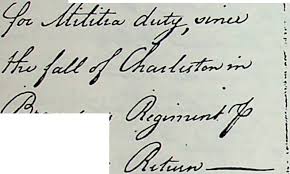 for Militia duty, since
the fall of Charleston in
Regiment
Return